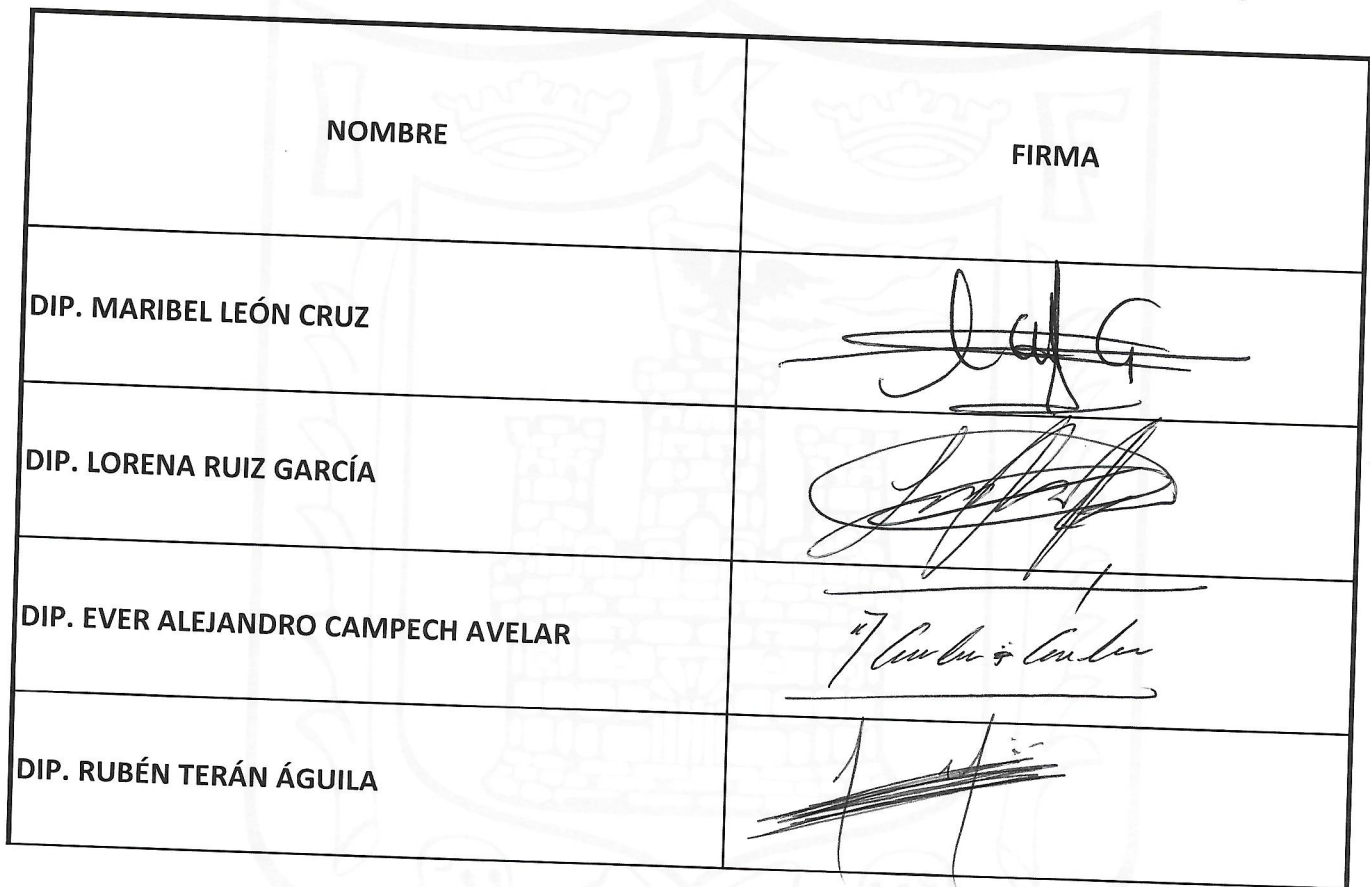 NOMBRE
FIRMA
DIP. MARIBEL LEÓN CRUZ
DIP. LORENA RUIZ GARCÍA
DIP. EVER ALEJANDRO CAMPECH AVELAR
DIP. RUBÉN TERÁN ÁGUILA